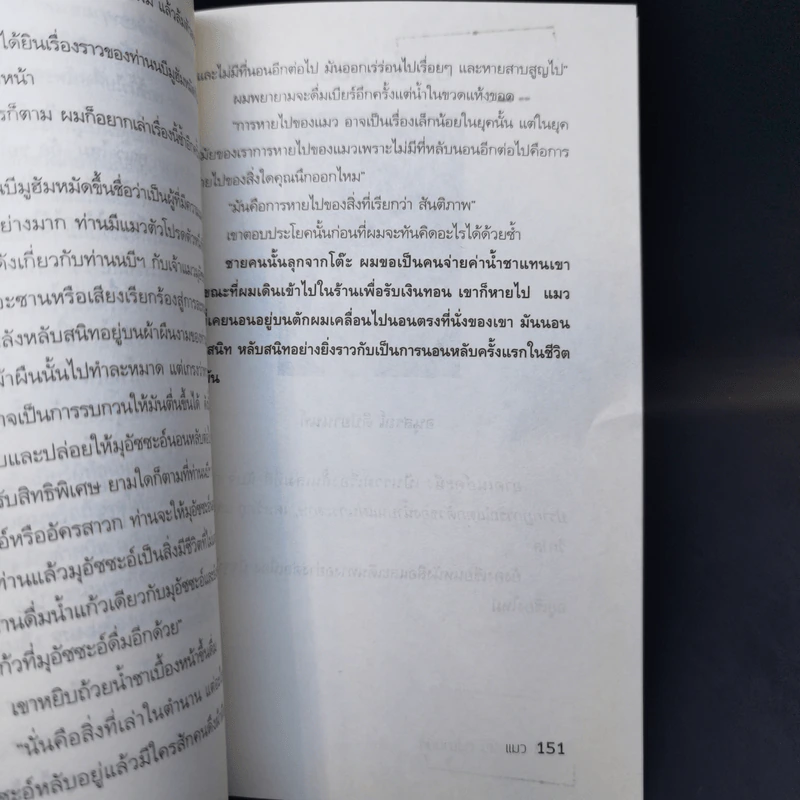 แล้วล้ม
ได้ยินเรื่องราวของท่านนบีมูฮัมหมัด
หน้า
รก็ตาม ผมก็อยากเล่าเรื่องนี้ซ้ำอีก
นบีมูฮัมหมัดขึ้นชื่อว่าเป็นผู้ที่มีความ
อย่างมาก ท่านมีแมวตัวโปรดตัวหนึ่ง
ดังเกี่ยวกับท่านนบีฯ กับเจ้าแมว
อะซานหรือเสียงเรียกร้องสู่การ
ลังหลับสนิทอยู่บนผ้าผืนงามของ
ผ้าผืนนั้นไปทำละหมาด แต่เกรงว่า
อาจเป็นการรบกวนให้มันตื่นขึ้นได้
บและปล่อยให้มุอัซซะฮ์นอนหลับ
รับสิทธิพิเศษ ยามใดก็ตามที่ท่านนบี
อ์หรืออัครสาวก ท่านจะให้มุอัซซะอ์
ท่านแล้วมุอัซซะอ์เป็นสิ่งมีชีวิตที่
านดื่มน้ำแก้วเดียวกับมุอัซซะอ์และ
ก้วที่มุอัซซะอ์ดื่มอีกด้วย"
เขาหยิบถ้วยน้ำชาเบื้องหน้าขึ้นดื่ม
"นั่นคือสิ่งที่เล่าในตำนาน แต่
ซะอ์หลับอยู่แล้วมีใครสักคนดึง
และไม่มีที่นอนอีกต่อไป มันออกเร่ร่อนไปเรื่อยๆ และหายสาบสูญไป"
ผมพยายามจะดื่มเบียร์อีกครั้งแต่น้ำในขวดแห้งขอด
"การหายไปของแมว อาจเป็นเรื่องเล็กน้อยในยุคนั้น แต่ในยุค
มัยของเราการหายไปของแมวเพราะไม่มีที่หลับนอนอีกต่อไปคือการ
ายไปของสิ่งใดคุณนึกออกไหม"
"มันคือการหายไปของสิ่งที่เรียกว่า สันติภาพ"
เขาตอบประโยคนั้นก่อนที่ผมจะทันคิดอะไรได้ด้วยซ้ำ
ชายคนนั้นลุกจากโต๊ะ ผมขอเป็นคนจ่ายค่าน้ำชาแทนเขา
ขณะที่ผมเดินเข้าไปในร้านเพื่อรับเงินทอน เขาก็หายไป แมว
ที่เคยนอนอยู่บนตักผมเคลื่อนไปนอนตรงที่นั่งของเขา มันนอน
สนิท หลับสนิทอย่างยิ่งราวกับเป็นการนอนหลับครั้งแรกในชีวิต
มัน
แมว 151